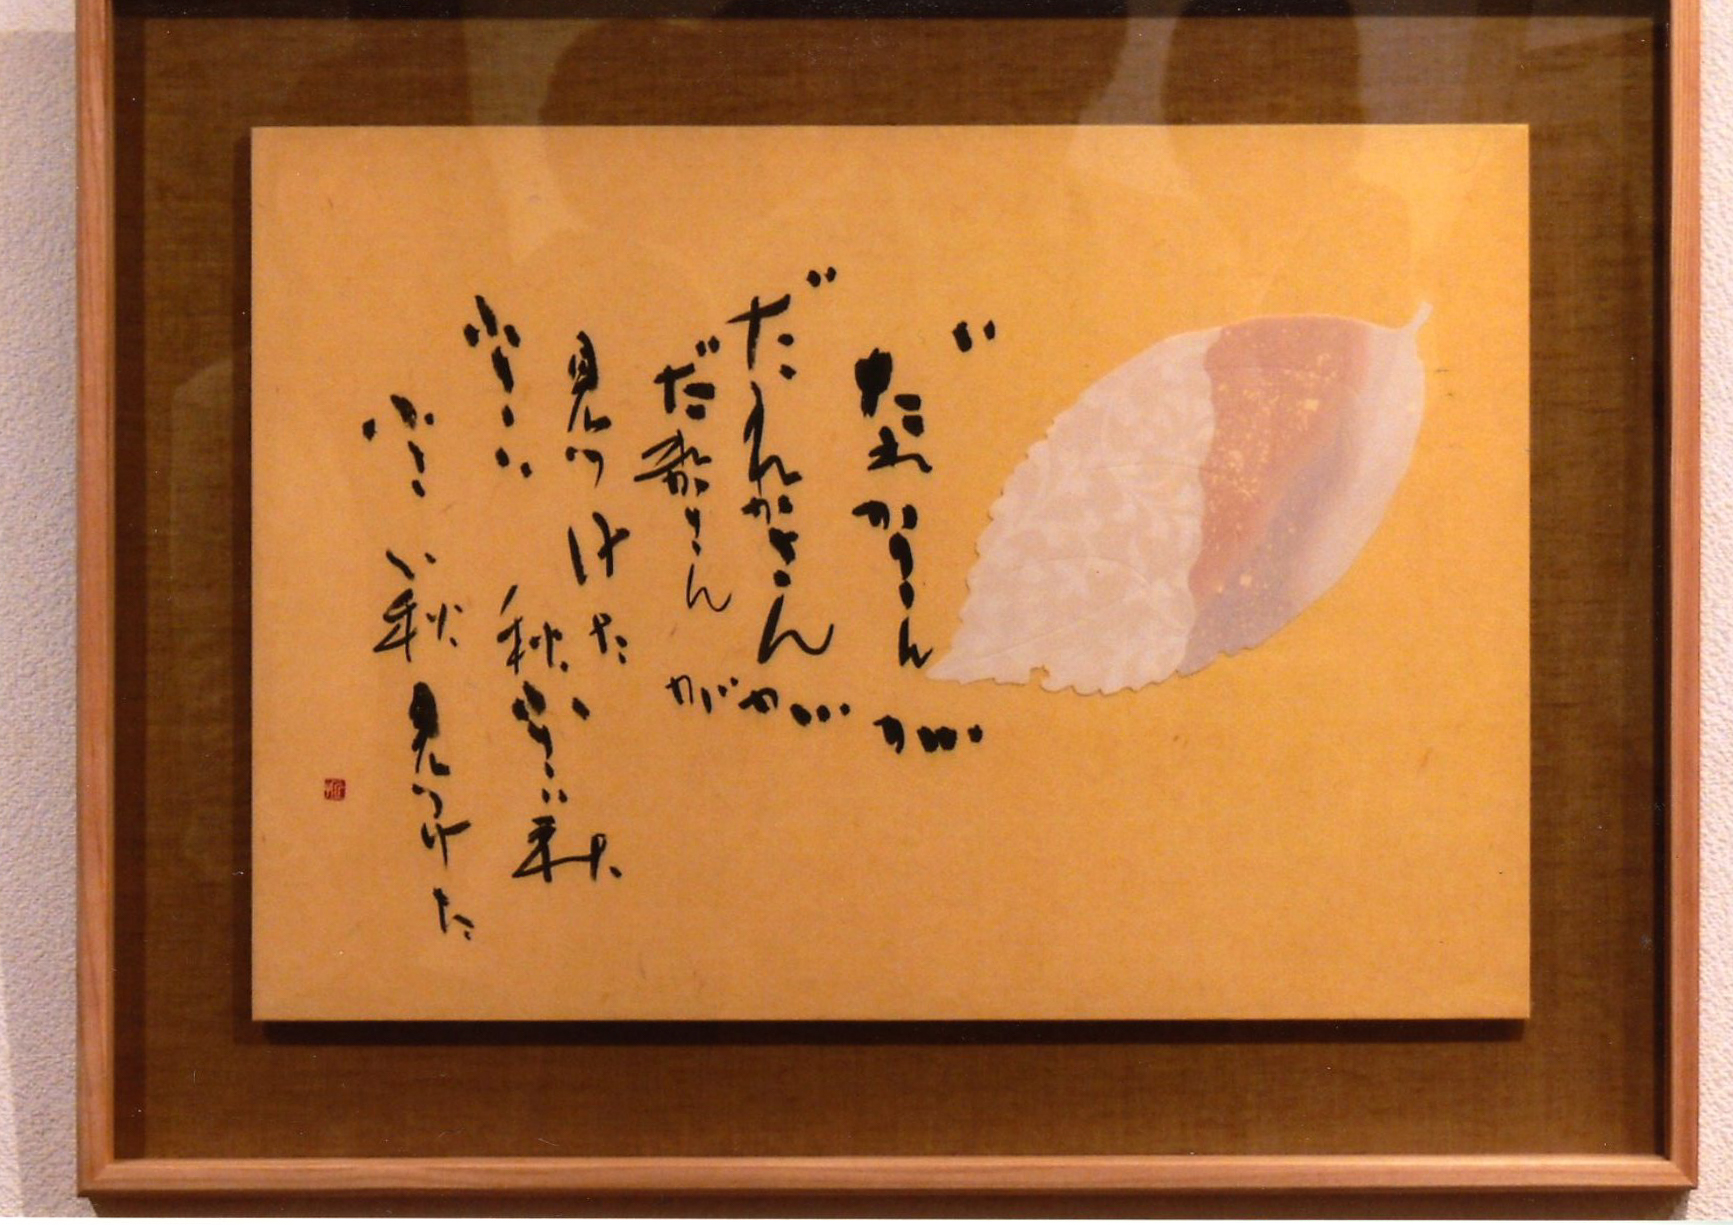 だれかさんが
だれかさんが
だれかさんが
見つけた
小さい秋小さい秋
小さい秋見つけた